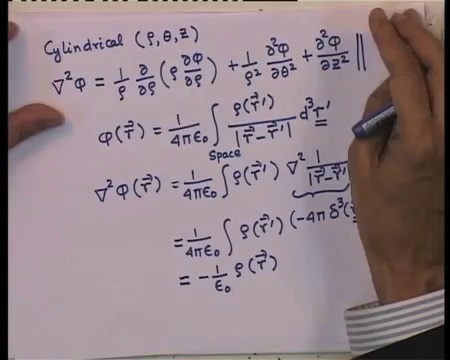 Cylindrical (ρ, θ, z)
∇²φ = 1/ρ ∂/∂ρ (ρ ∂φ/∂ρ) + 1/ρ² ∂²φ/∂θ² + ∂²φ/∂z² ||
φ(r⃗) = 1/4πε₀ ∫ ρ(r⃗′)/|r⃗-r⃗′| d³r′
Space
∇²φ(r⃗) = 1/4πε₀ ∫ ρ(r⃗′) ∇² 1/|r⃗-r⃗′|
= 1/4πε₀ ∫ ρ(r⃗′) (-4π δ³(
= - 1/ε₀ ρ(r⃗)